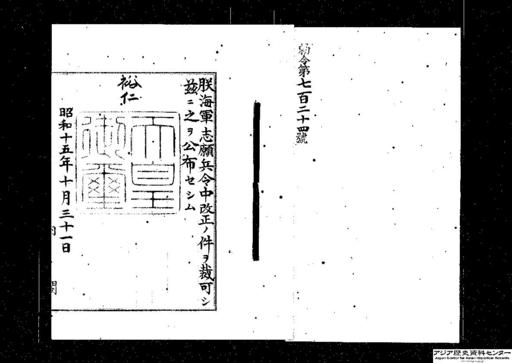 勅令第七百二十四號
朕海軍志願兵令中改正ノ件ヲ裁可シ
茲ニ之ヲ公布セシム
裕仁
天皇御璽
昭和十五年十月三十一日
アジア歴史資料センター
Japan Center for Asian Historical Records